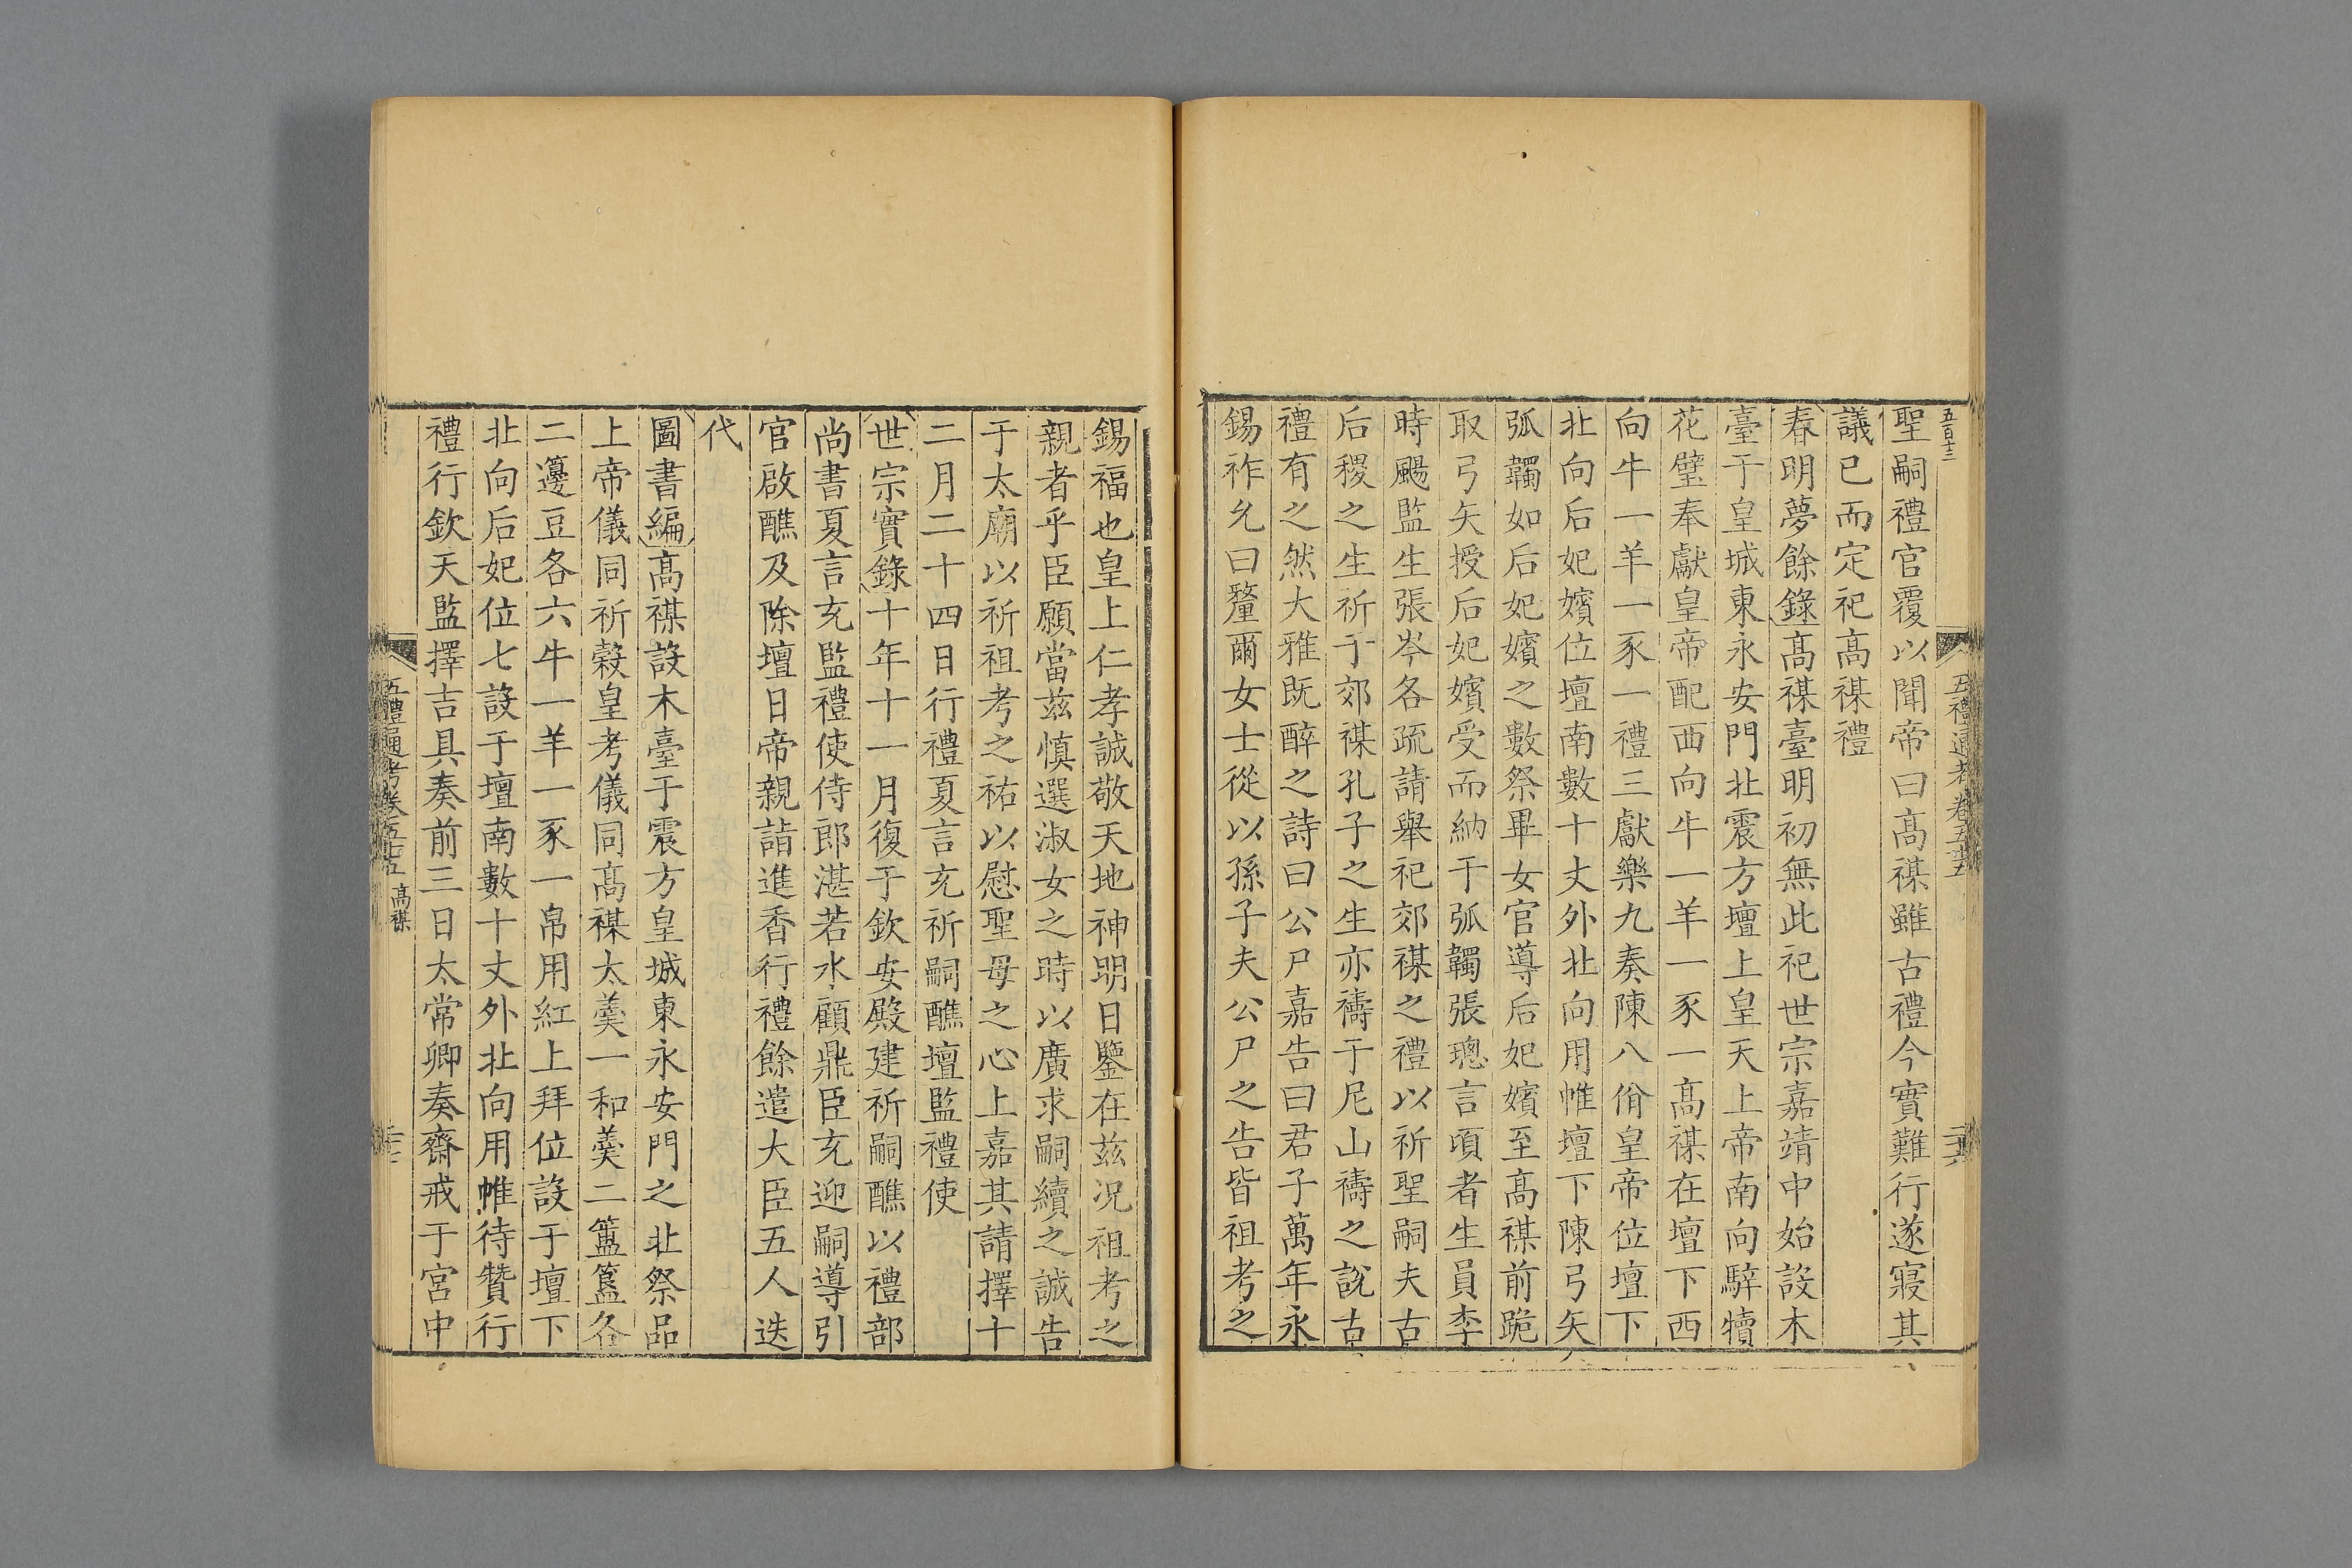 五百十二
五禮通考卷五十五
二十六
聖嗣禮官覆以聞帝曰高禖雖古禮今實難行遂寢其
議已而定祀高禖禮
春明夢餘錄高禖臺明初無此祀世宗嘉靖中始設木
臺于皇城東永安門北震方壇上皇天上帝南向騂犢
花璧奉獻皇帝配西向牛一羊一豕一高禖在壇下西
向牛一羊一豕一禮三獻樂九奏陳八佾皇帝位壇下
北向后妃嬪位壇南數十丈外北向用帷壇下陳弓矢
弧韣如后妃嬪之數祭畢女官導后妃嬪至高禖前跪
取弓矢授后妃嬪受而納于弧韣張璁言頃者生員李
時颺監生張岑各疏請舉祀郊禖之禮以祈聖嗣夫古
后稷之生祈于郊禖孔子之生亦禱于尼山禱之說古
禮有之然大雅既醉之詩曰公尸嘉告曰君子萬年永
錫祚允曰釐爾女士從以孫子夫公尸之告皆祖考之
錫福也皇上仁孝誠敬天地神明日鑒在茲况祖考之
親者乎臣願當茲慎選淑女之時以廣求嗣續之誠告
于太廟以祈祖考之祐以慰聖母之心上嘉其請擇十
二月二十四日行禮夏言充祈嗣醮壇監禮使
世宗實錄十年十一月復于欽安殿建祈嗣醮以禮部
尚書夏言充監禮使侍郎湛若水顧鼎臣充迎嗣導引
官啟醮及除壇日帝親詣進香行禮餘遣大臣五人迭
代
圖書編高禖設木臺于震方皇城東永安門之北祭品
上帝儀同祈穀皇考儀同高禖太羹一和羹二簠簋各
二籩豆各六牛一羊一豕一帛用紅上拜位設于壇下
北向后妃位七設于壇南數十丈外北向用帷待贊行
禮行欽天監擇吉具奏前三日太常卿奏齋戒于宮中
五禮通考卷五十五 高禖